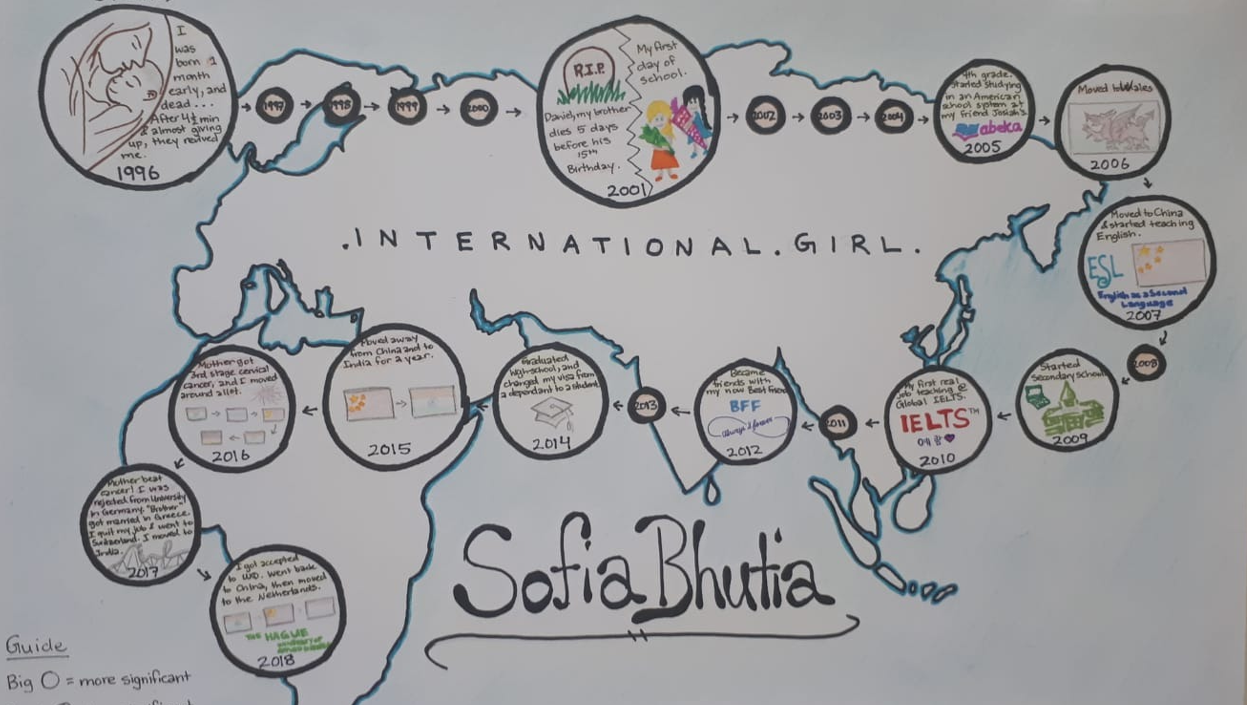 I
was
born 2
month
early, and
dead...
After 4½ min
& almost giving
up, they revived
me.
1996
1997
1998
1999
2000
R.I.P.
Daniel, my brother
dies 5 days
before his
15th
Birthday.
My first
day of
school.
2001
2002
2003
2004
4th grade.
Started studying
in an American
school system at
my friend Josiah's
abeka
2005
Moved to Wales
2006
Moved to China
& started teaching
English.
ESL
English as a Second
Language
2007
2008
Started
Secondary school
2009
My first real
job teaching @
Global IELTS.
IELTS™
2010
2011
Became
friends with
my now Best friend
BFF
always & forever
2012
2013
Graduated
high-school, and
changed my visa from
a dependant to a student
2014
Moved away
from China and to
India for a year.
2015
Mother got
3rd stage cervical
cancer, and I moved
around alot.
2016
Mother beat
cancer! I was
rejected from University
in Germany. "Brother"
got married in Greece.
I quit my job & went to
Switzerland. I moved to
India.
2017
I got accepted
to UD. Went back
to China, then moved
to the Netherlands.
THE HAGUE
2018
.INTERNATIONAL.GIRL.
Sofia Bhutia
Guide
Big O = more significant